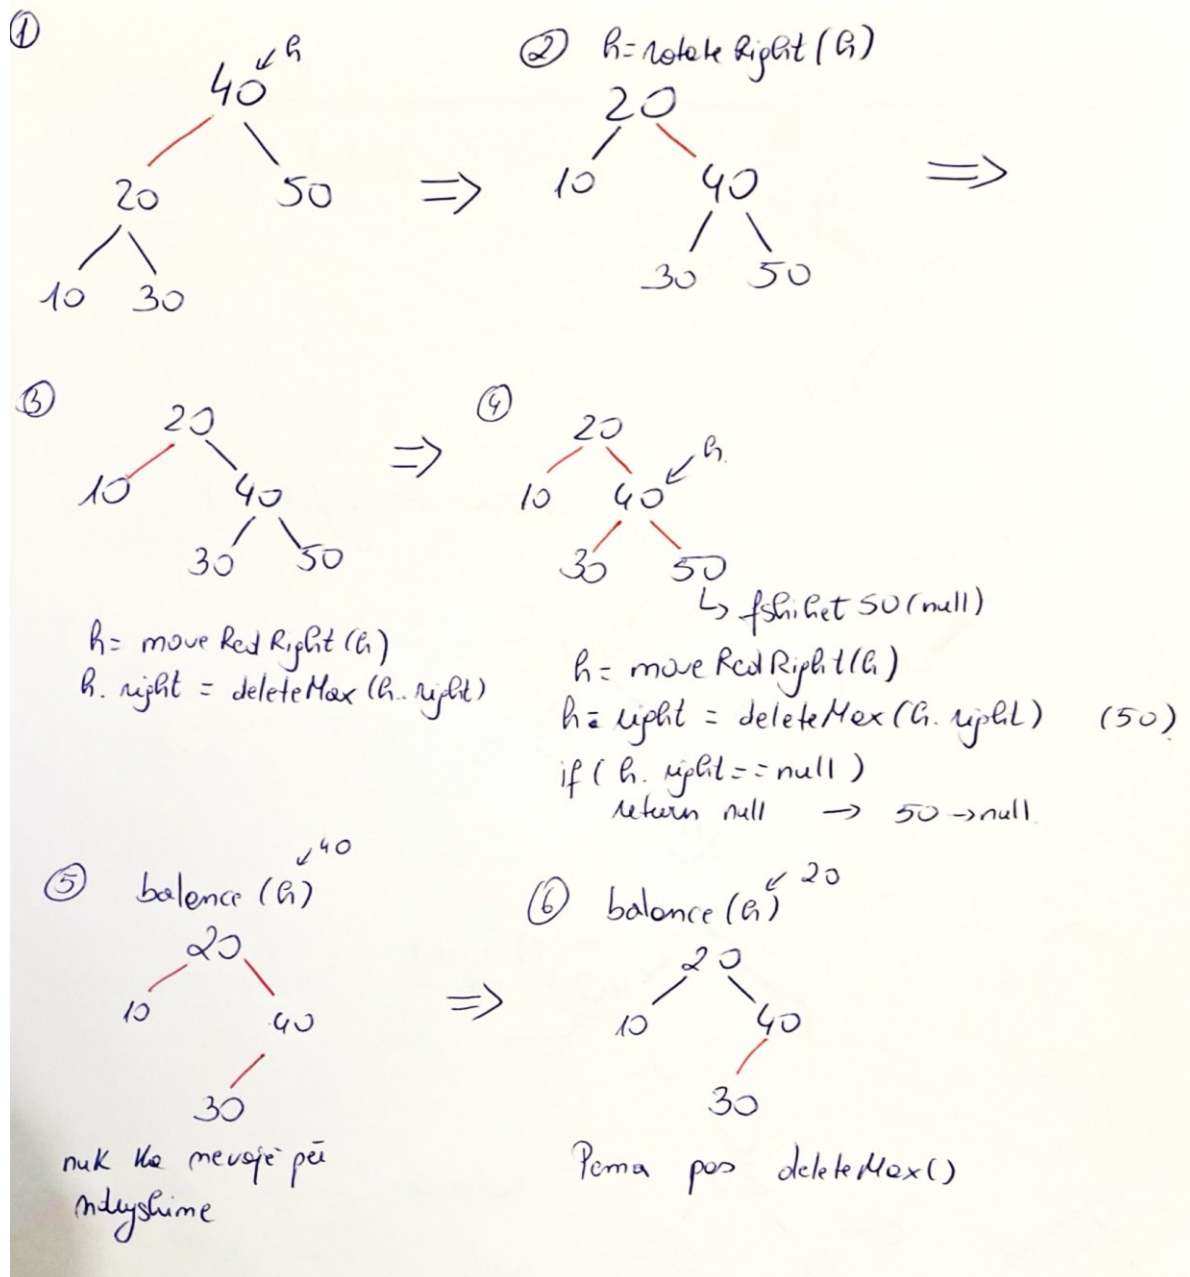 ①
h
40
20 50
10 30
⇒
② h = rotate Right (h)
20
10 40
30 50
⇒
③
20
10 40
30 50
h = move Red Right (h)
h. right = deleteMax (h. right)
⇒
④
20
h.
10 40
30 50
↳ fshihet 50 (null)
h = move Red Right (h)
h = right = deleteMax (h. right) (50)
if ( h. right == null )
return null → 50 → null.
⑤ balance (h) 40
20
10 40
30
nuk ka nevojë për
ndryshime
⇒
⑥ balance (h) 20
20
10 40
30
Pema pas deleteMax()